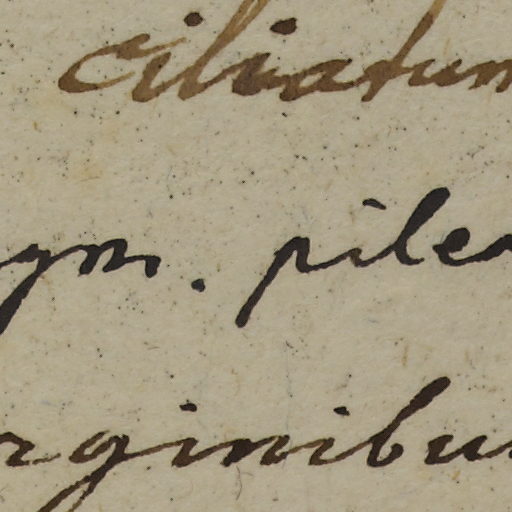 ciliatum
ym. pilea
rginibus